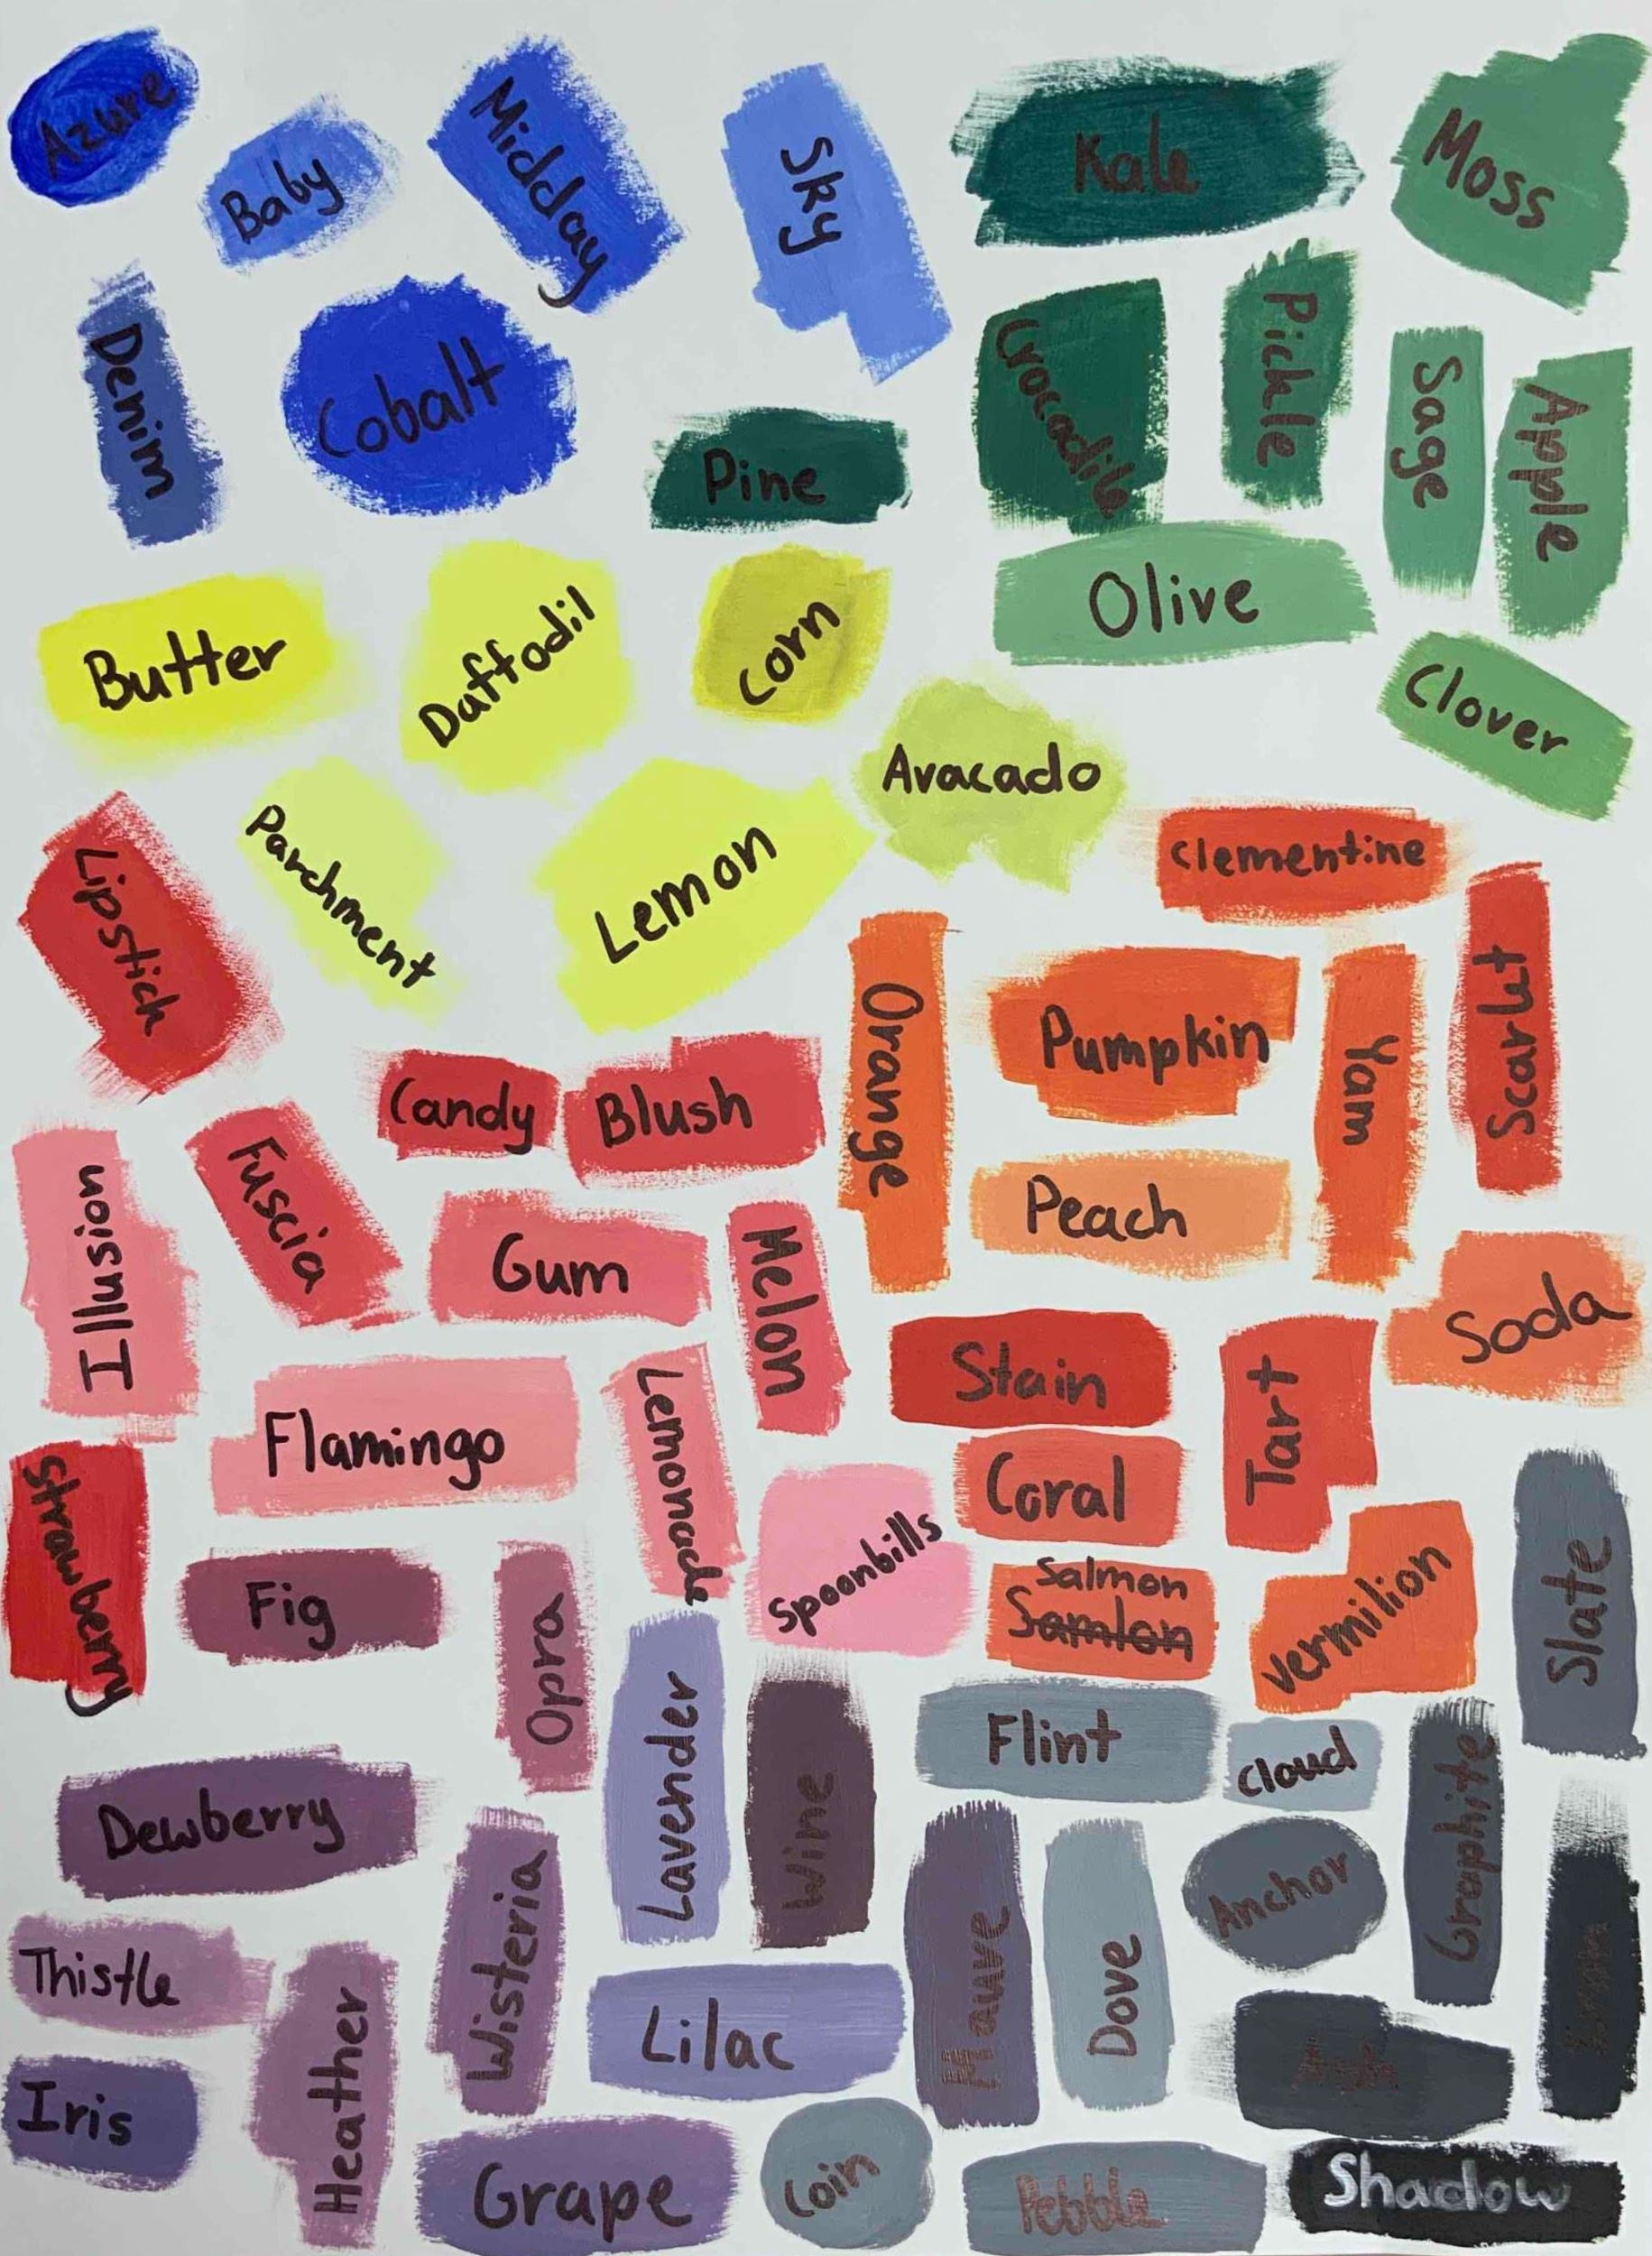 Azure
Baby
Midday
Sky
Kale
Moss
Denim
Cobalt
Pine
Crocadile
Pickle
Sage
Apple
Butter
Daffodil
Corn
Olive
Clover
Avacado
Lipstick
Parchment
Lemon
Clementine
Orange
Pumpkin
Yam
Scarlet
Candy
Blush
Illusion
Fuscia
Gum
Melon
Peach
Soda
Flamingo
Lemonade
Stain
Tart
Strawberry
Coral
Spoonbills
Salmon
Samlon
Vermilion
Slate
Fig
Opra
Lavender
Wine
Flint
Cloud
Graphite
Dewberry
Wisteria
Mauve
Dove
Anchor
Thistle
Heather
Lilac
Ash
Iris
Grape
Coin
Pebble
Shadow